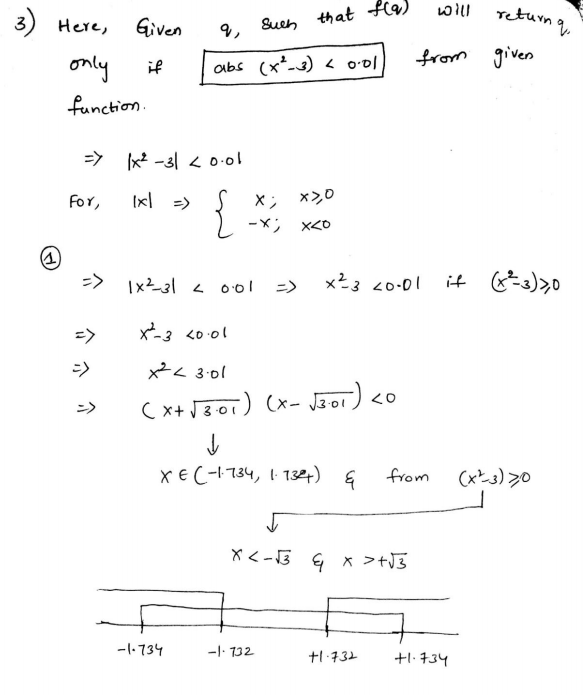 3) Here, Given q, such that f(q) will return q
only if abs (x²-3) < 0.01 from given
function.
=> |x²-3| < 0.01
For, |x| => { x; x≥0
-x; x<0
①
=> |x²-3| < 0.01 => x²-3 <0.01 if (x²-3)≥0
=> x²-3 <0.01
=> x² < 3.01
=> (x+√3.01) (x-√3.01) <0
↓
x ∈ (-1.734, 1.734) & from (x²-3)≥0
↓
x<-√3 & x >+√3
-1.734 -1.732 +1.732 +1.734